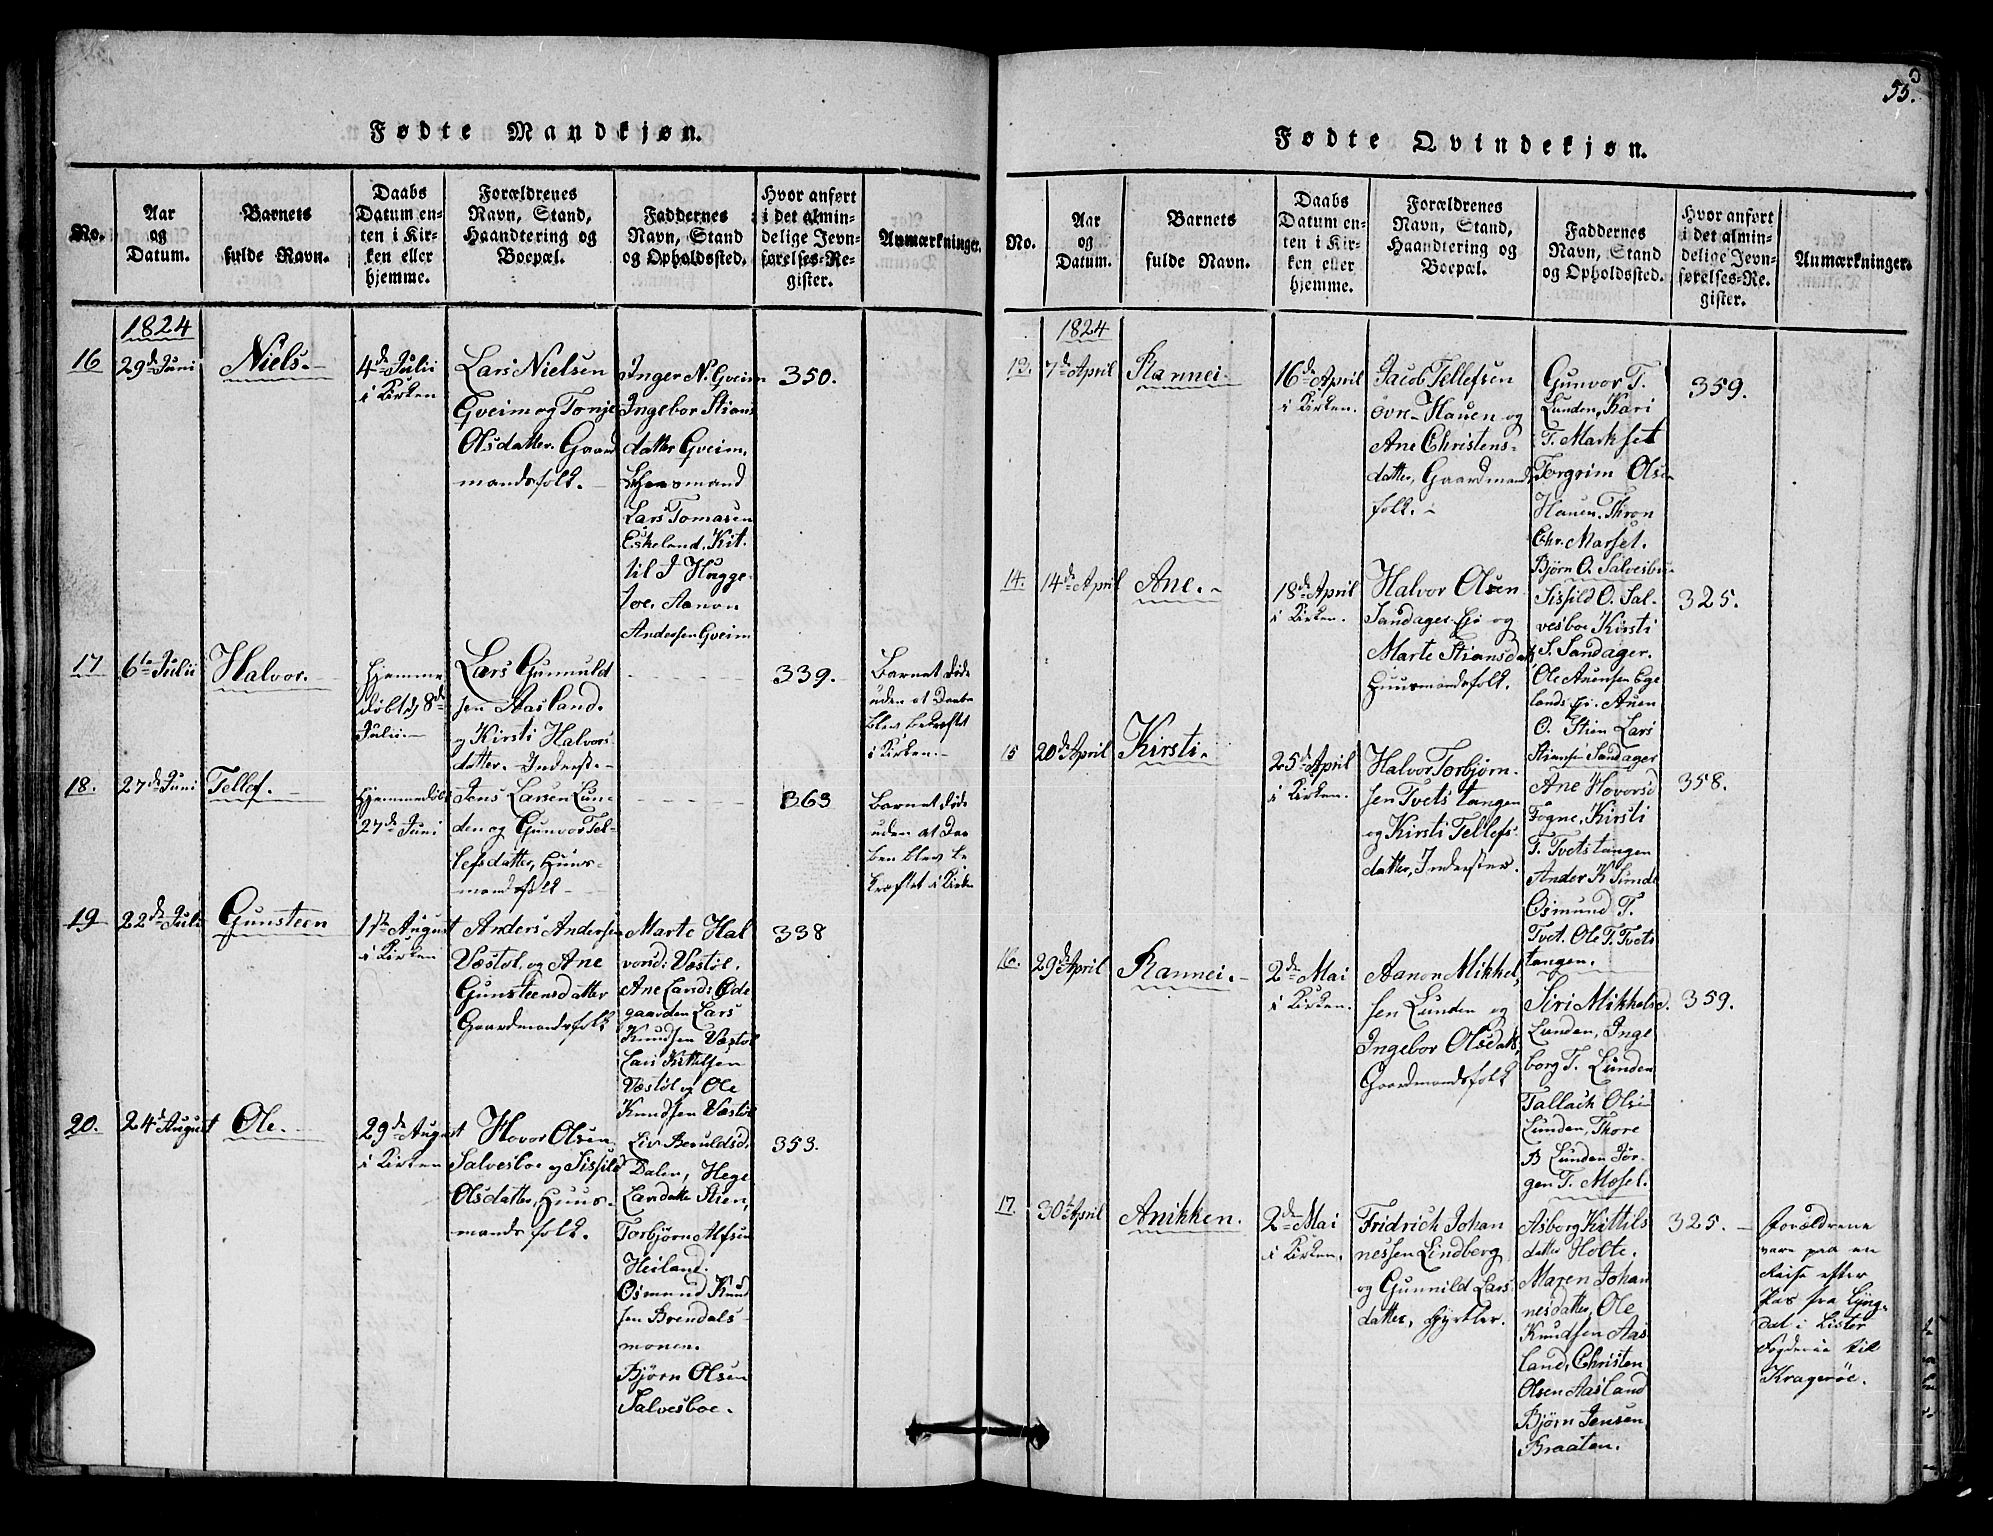 53.
Fødte Mandkjøn.
No.
Aar
og
Datum.
Barnets
fulde Navn.
Daabs
Datum en-
ten i Kir-
ken eller
hjemme.
Forældrenes
Navn, Stand,
Haandtering og
Boepæl.
Faddernes
Navn, Stand
og Opholdssted.
Hvor anført
i det almin-
delige Jevn-
førelses-Re-
gister.
Anmærkninger.
1824
16
29de Juni
Niels.
4de Julii
i Kirken
Lars Nielsen
Gveim og Tonje
Olsdatter. Gaard
mandsfolk.
Inger N. Gveim
Ingebor Stians
datter Gveim,
Lars Tomasen
Eskeland, Kit-
til J Hugge-
Aanon
Andersen Gveim
350.
17
6te Julii
Halvor.
Hjemme
døbt d 8de
Julii
Lars Gunnuld
sen Aasland.
og Kirsti Halvors
datter. Inderst.
339.
Barnet døde
uden at Daaben
blev bekræftet
i Kirken
18.
27de Juni
Tellef.
Hjemmedøbt
27de Juni
Jens Larsen Lun-
den og Gunvor Tel-
lefsdatter, Huus-
mandsfolk
363
Barnet døde
uden at Daa
ben blev be
kræftet i Kirken
19
22de Juli
Gunsteen
1ste August
i Kirken
Anders Andersen
Væstøl, og Ane
Gunsteensdatter
Gaardmandsfolk
Marte Hal
vorsd: Væstøl.
Ane Larsds Øde
gaarden Lars
Knudsen Væstøl
Lars Kittelsen
Væstøl og Ole
Knudsen Væstøl
338
20.
24de August
Ole.
29de August
i Kirken
Hovor Olsen
Salvesboe og Sissild
Olsdatter, Huus-
mandsfolk.
Liv Beruldsd.
Dalen, Hege
Larsdatter Stien,
Torbjørn Alfsen
Heiland.
Osmund Knud
sen Brendals-
monen.
Bjørn Olsen
Salvesboe.
353.
Fødte Qvindekjøn.
No.
Aar
og
Datum.
Barnets
fulde Navn.
Daabs
Datum en-
ten i Kir-
ken eller
hjemme.
Forældrenes
Navn, Stand,
Haandtering og
Boepæl.
Faddernes
Navn, Stand
og Opholdssted.
Hvor anført
i det almin-
delige Jevn-
førelses-Re-
gister.
Anmærkninger.
1824
13.
7de April
Rannei.
16de April
i Kirken.
Jacob Tellefsen
övre Hauen og
Ane Christens-
datter, Gaardmands
folk.
Gunvor T.
Lunden, Kari
T. Markset
Torgrim Olsen
Hauen. Thron
Chr. Marset.
359.
14.
14de April
Ane.
18de April
i Kirken.
Halvor Olsen
Sandager Eje og
Marte Stiansdatt
Huusmandsfolk.
Bjørn O. Salvesboe
Sissild O. Sal-
vesboe Kirsti
S. Sandager.
Ole Auensen Ege
lands Ej. Auen
O. Stien Lars
Stiansen Sandager
325.
15
20de April
Kirsti.
25de April
i Kirken.
Halvor Torbjørn-
sen Tvetstangen
og Kirsti Tellefs
datter, Inderster.
Ane Hovorsd
Fogne, Kirsti
T. Tvetstangen
Ander K Sunde
Osmund T.
Tvet. Ole T. Tvets
tangen.
358.
16.
29de April
Rannei.
2de Mai
i Kirken.
Aanon Mikkel-
sen Lunden og
Ingebor Olsdatt
Gaardmandsfolk
Siri Mikkelsd.
Lunden, Inge
borg T. Lunden
Tallack Olsen
Lunden, Thore
B Lunden Jør-
gen T. Mosel.
359.
17.
30te April
Anikken.
2de Mai
i Kirken.
Fridrich Johan
nessen Lindberg
og Gunnild Lars
datter, Gyrtler.
Asborg Kittils
datter Holte.
Maren Johan
nesdatter, Ole
Knudsen Aas
land, Christen
Olsen Aasland
Bjørn Jensen
Braaten.
325.
Forældrene
vare paa en
Reise efter
Pas fra Lyng-
dal i Lister
Fogderie til
Kragerøe.